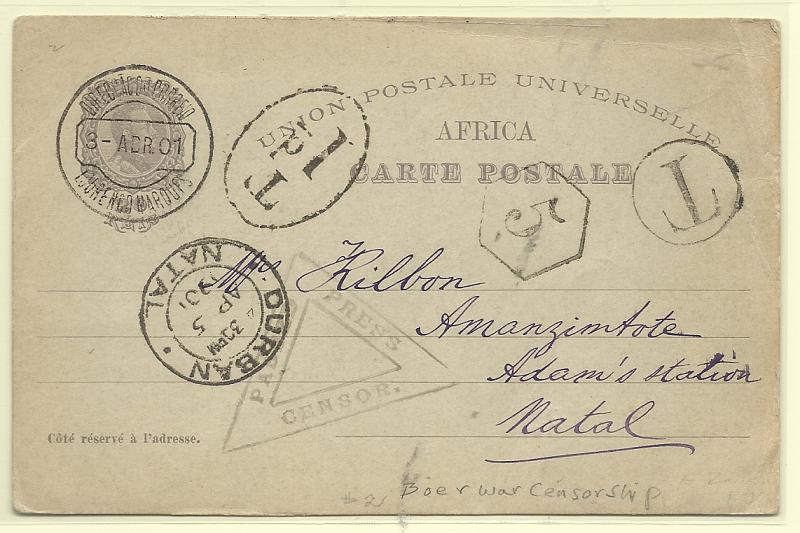 UNION POSTALE UNIVERSELLE
AFRICA
CARTE POSTALE
3- ABR.01
LOURENÇO MARQUES
1D.
T
5
T
DURBAN • NATAL
4 30PM
AP 5
1901
PRESS
CENSOR.
Kilbon
Amanzimtote
Adam's station
Natal
Côté réservé à l'adresse.
#2
Boer war censorship